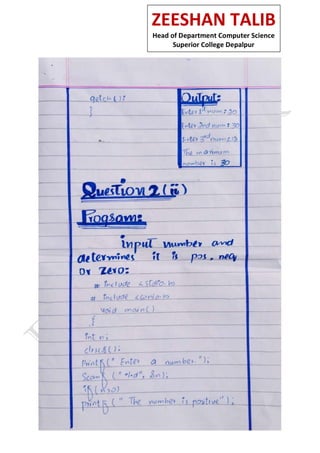 ZEESHAN TALIB
Head of Department Computer Science
Superior College Depalpur
getch();
}
Output:
Enter 1st num: 30
Enter 2nd num: 30
Enter 3rd num:
The maximum
number is 30
Question 2 (ii)
Program:
input number and
determines it is pos, neg
or zero:
# include <stdio.h
# include <conio.h
void main()
{
int n;
clrscr();
Printf(" Enter a number.");
Scanf ("%d", &n);
if(n>0)
printf (" The number is positive");